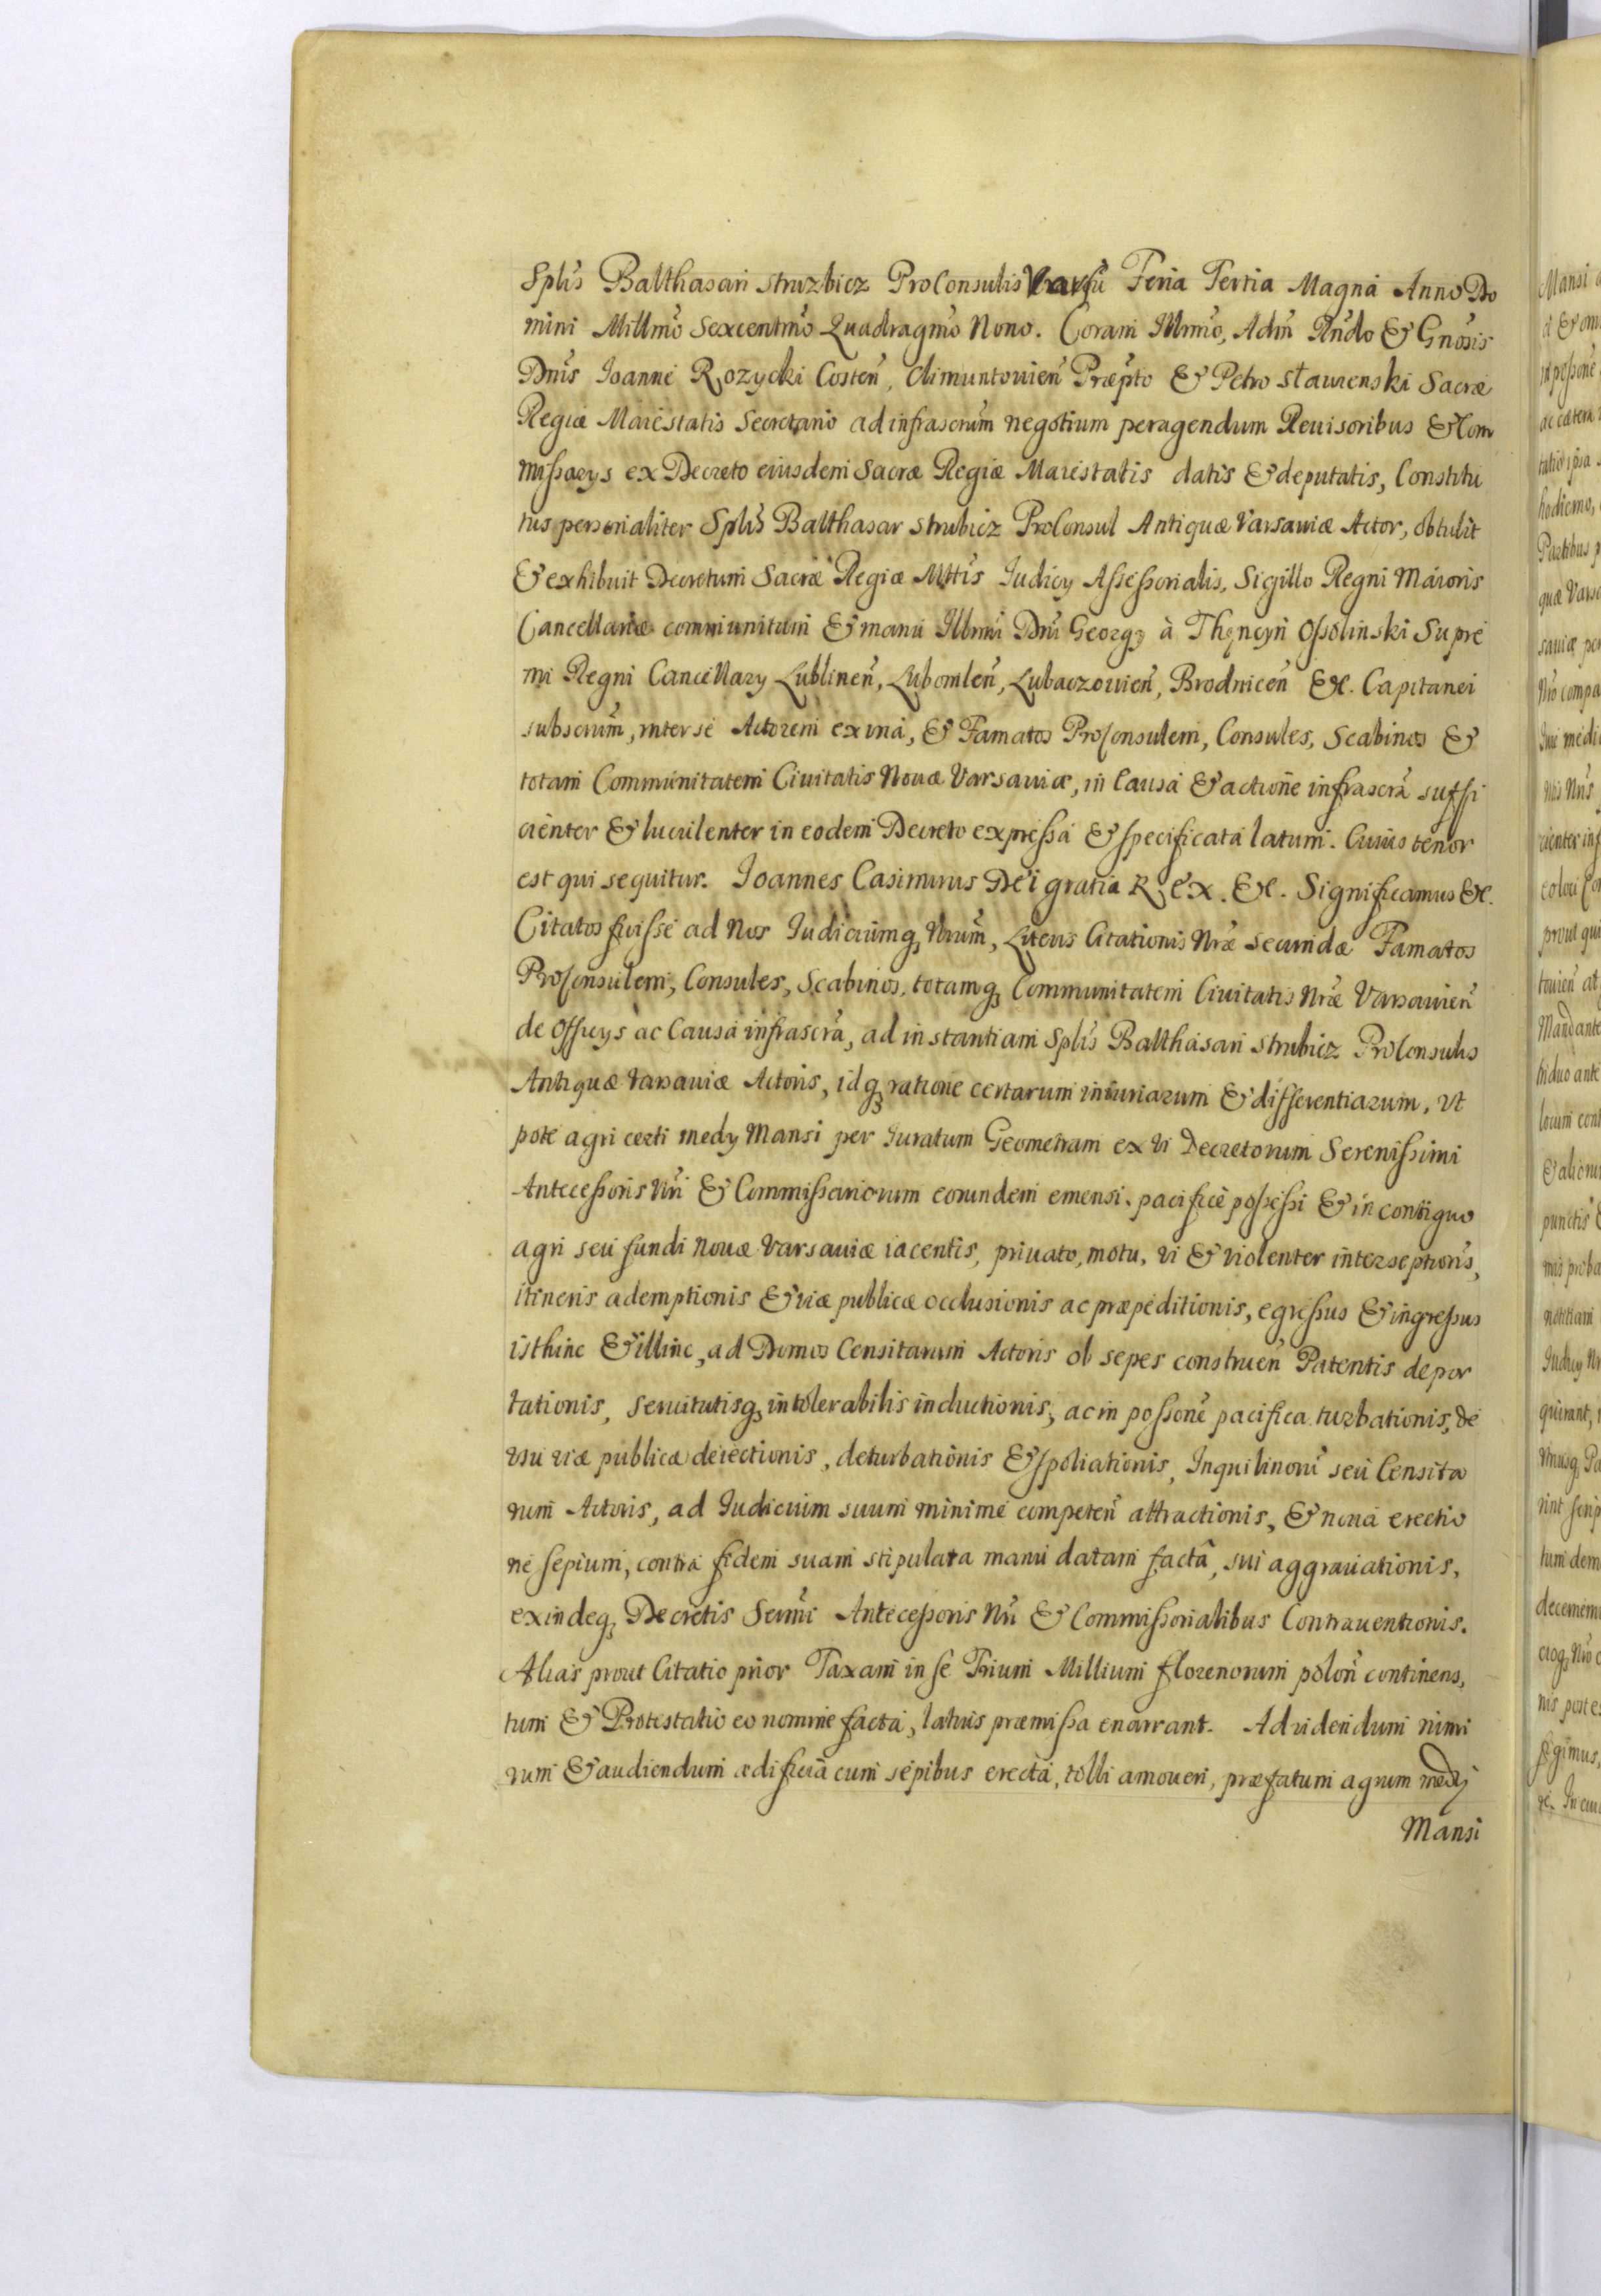 Splis Balthasari Struzbicz ProConsulis Varsu Feria Tertia Magna Anno Do
mini Millmo Sexcentmo Quadragmo Nono. Coram Illmo, Adm Rndo & Gnosis
Dnis Joanne Rozycki Costen, Climuntouien Præpto & Petro Staurenski Sacræ
Regiæ Maiestatis Secretario ad infrascrum negotium peragendum Reuisoribus & Com
missarys ex Decreto eiusdem Sacræ Regiæ Maiestatis datis & deputatis, Constitu
tus personaliter Splis Balthasar Strubicz ProConsul Antiquæ Varsauiæ Actor, obtulit
& exhibuit Decretum Sacræ Regiæ Mttis Iudicy Assessorialis, Sigillo Regni Maioris
Cancellariæ communitum & manu Illmi Dni Georgy à Thęncyn Ossolinski Supre
mi Regni Cancellary Lublinen, Lubomlen, Lubaczouien, Brodnicen &c. Capitanei
subscrum, inter se Actorem ex una, & Famatos ProConsulem, Consules, Scabinos &
totam Communitatem Ciuitatis Nouæ Varsauiæ, in Causa & actione infrascra suffi
cienter & luculenter in eodem Decreto expressa & specificata latum. Cuius tenor
est qui sequitur. Joannes Casimirus Dei gratia Rex. &c. Significamus &c.
Citatos fuisse ad Nos Iudiciumq Nrum, Literis Citationis Nræ secundæ Famatos
ProConsulem, Consules, Scabinos, totamq Communitatem Ciuitatis Nræ Varsauien
de Officys ac Causa infrascra, ad instantiam Splis Balthasari Strubicz ProConsulis
Antiquæ Varsauiæ Actoris, idq ratione certarum iniuriarum & differentiarum, Ut
pote agri certi medy Mansi per Iuratum Geometram ex Vi Decretorum Serenissimi
Antecessoris Nri & Commissariorum eorundem emensi, pacifice possessi & in contiguo
agri seu fundi Nouæ Varsauiæ iacentis, priuato, motu, vi & violenter interseptionis,
itineris ademptionis & viæ publicæ occlusionis ac præpeditionis, egressus & ingressus
isthinc & illinc, ad Domos Censitarum Actoris ob sepes construen Patentis depor
tationis, Seruitutisq intolerabilis inductionis, ac in possone pacifica turbationis, de
usu viæ publicæ deiectionis, deturbationis & spoliationis, Inquilinoru seu Censita
rum Actoris, ad Iudicium suum minime competen attractionis, & noua erectio
ne sepium, contra fidem suam stipulata manu datam facta, sui aggrauationis,
exindeq Decretis Sermi Antecessoris Nri & Commissorialibus Contrauentionis.
Alias prout Citatio prior Taxam in se Trium Millium florenorum polon continens,
tum & Protestatio eo nomine facta, latius præmissa enarrant. Ad videndum nimi
rum & audiendum ædificia cum sepibus erecta, tolli amoueri, præfatum agrum medy
Mansi